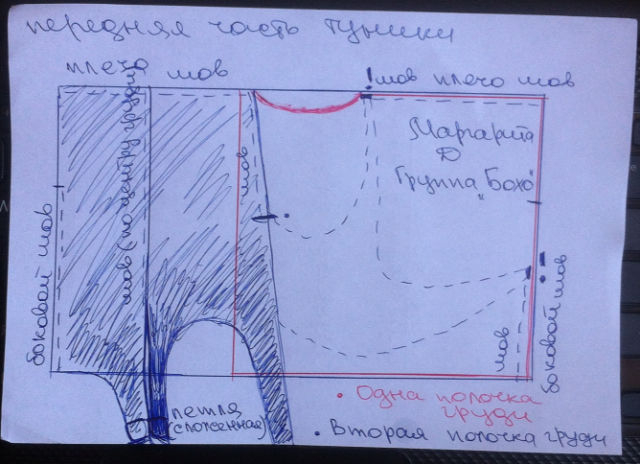 передняя часть туники
плечо шов
!шов плечо шов
Маргарита
D
Группа "Бохо"
боковой шов
шов (по центру груди)
шов
шов
боковой шов
петля
(сложенная)
• Одна полочка
груди
• Вторая полочка груди